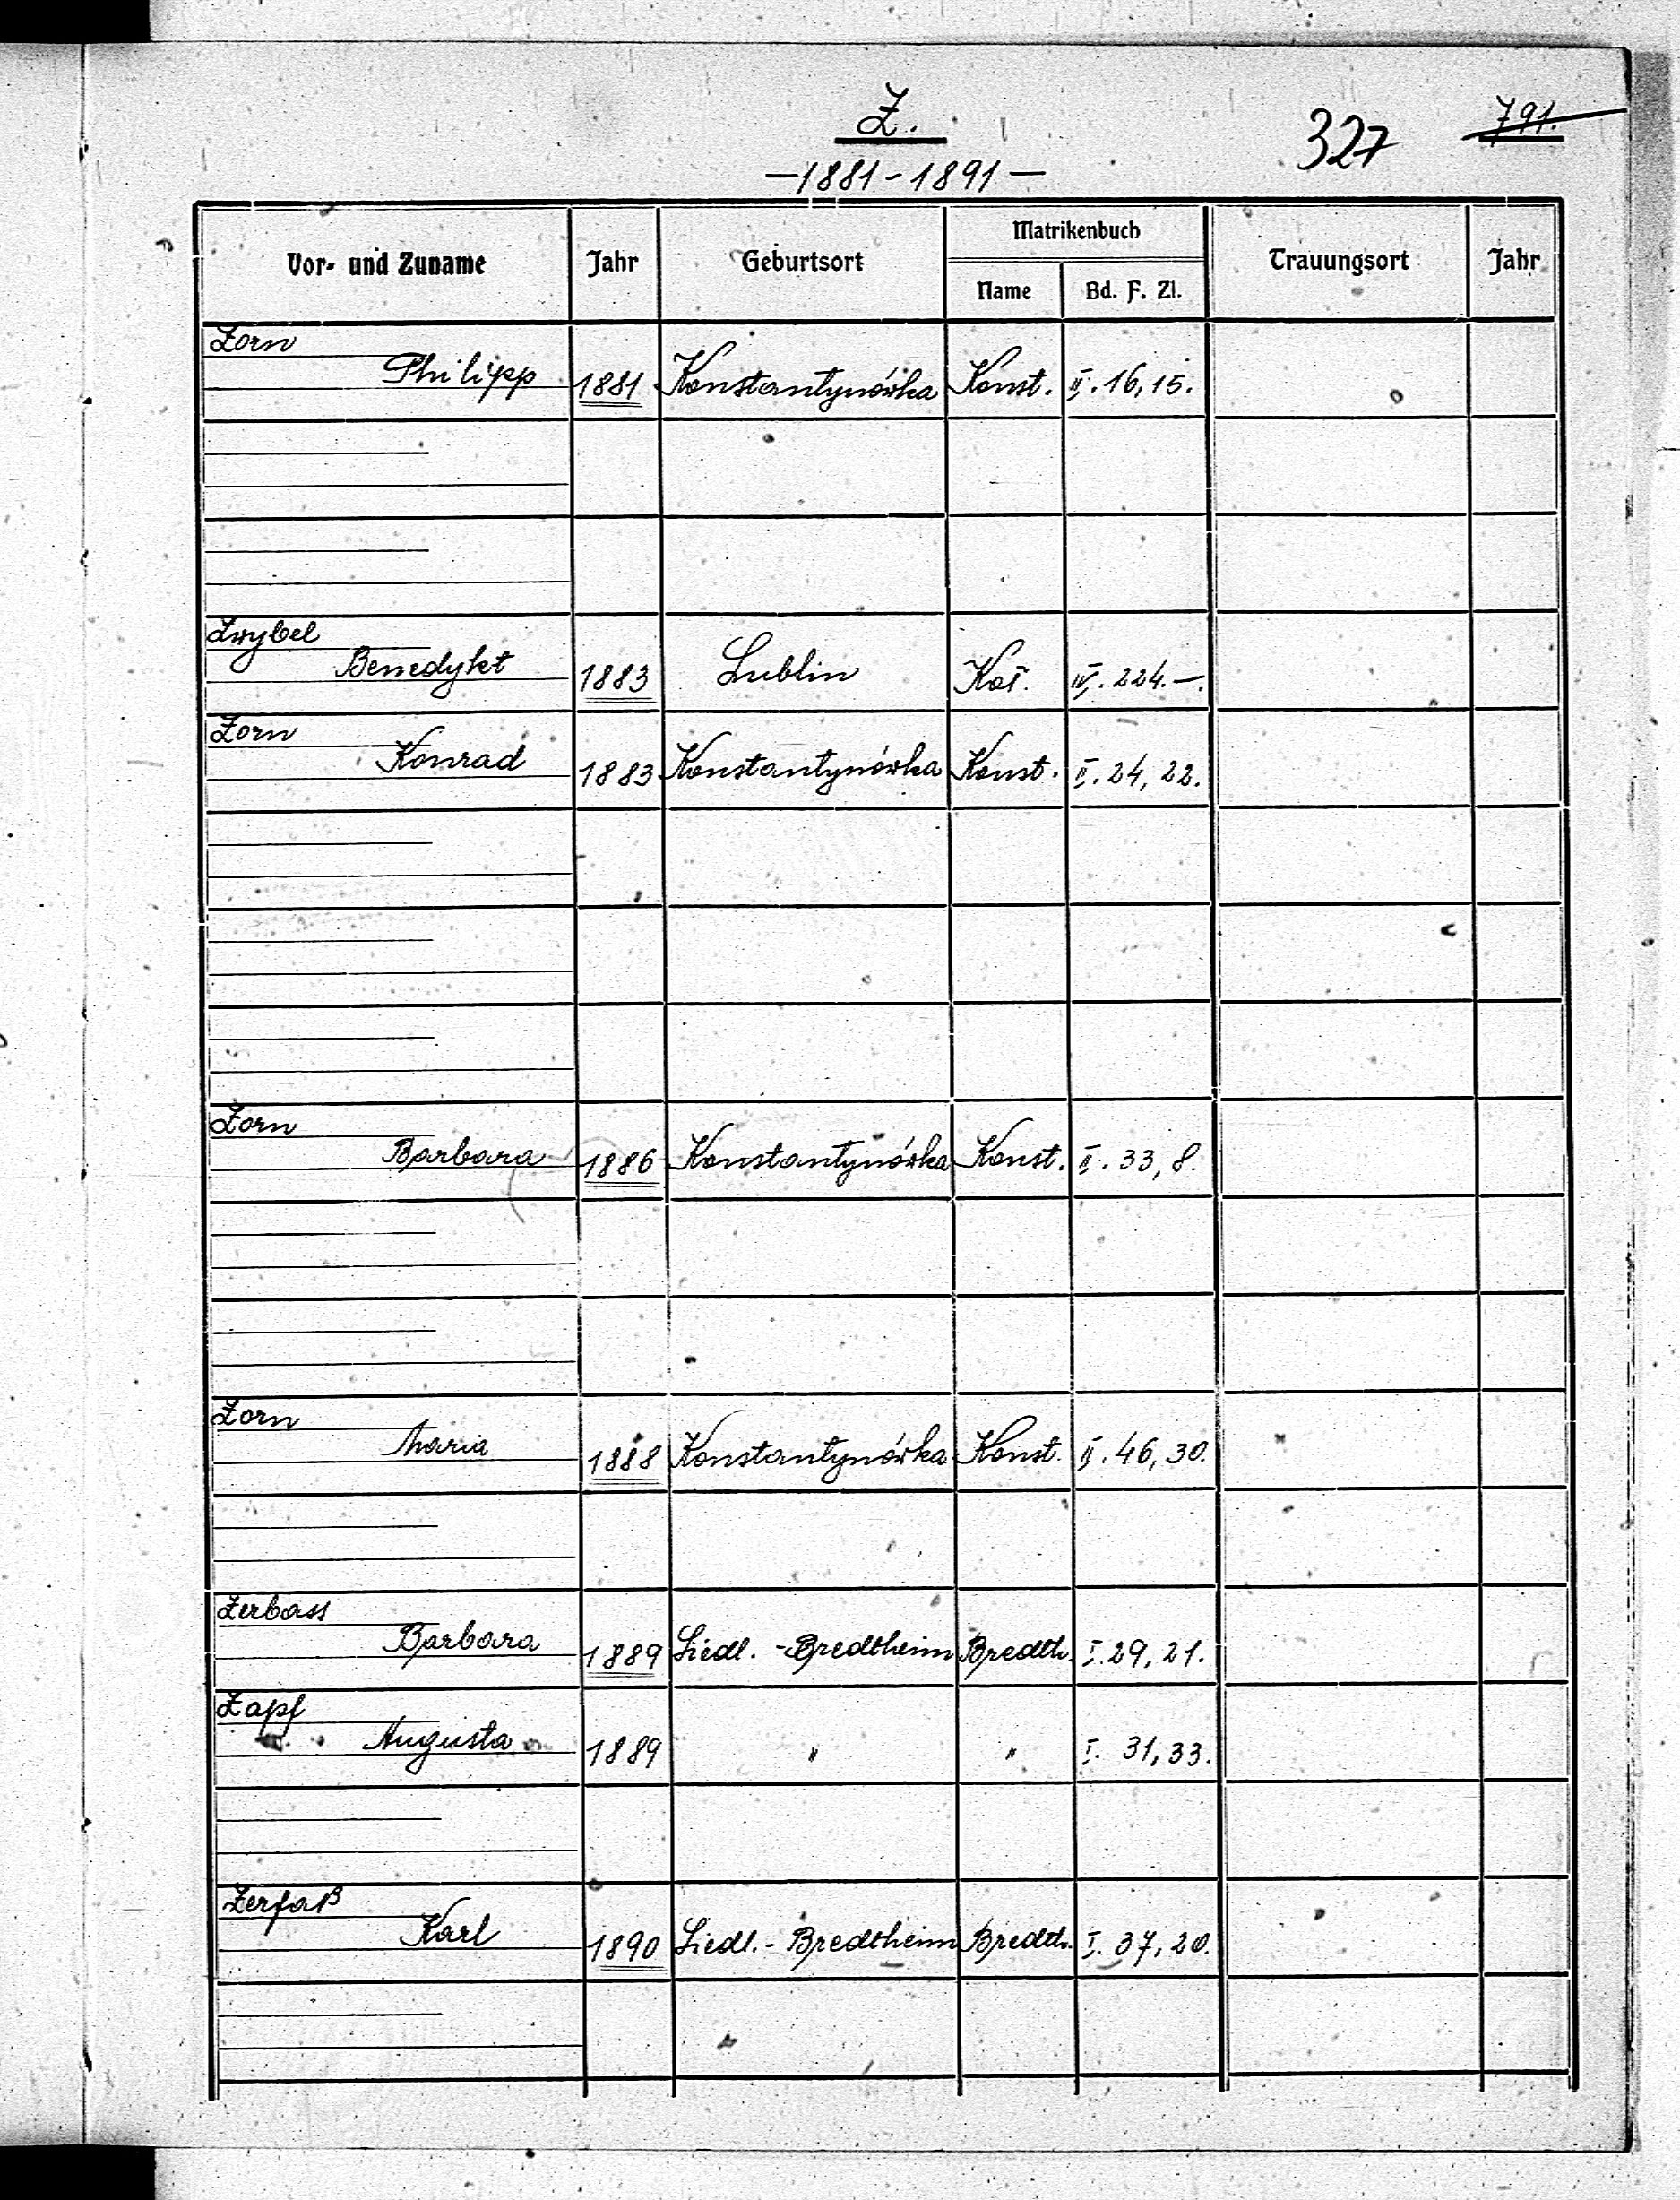 Z.
327
791.
—1881-1891—
Vor- und Zuname Jahr Geburtsort Matrikenbuch Trauungsort Jahr
Name Bd. F. Zl.
Zorn
Philipp 1881 Konstantynówka Konst. II. 16, 15.
Zwybel
Benedykt 1883 Lublin IV. 224. —.
Zorn
Konrad 1883 Konstantynówka Konst. II. 24, 22.
Zorn
Barbara 1886 Konstantynówka Konst. II. 33, 8.
Zorn
Maria 1888 Konstantynówka Konst. II. 46, 30.
Zerbass
Barbara 1889 Siedl. - Bredtheim Bredth. I. 29, 21.
Zapf
Augusta 1889 " " I. 31, 33.
Zerfaß
Karl 1890 Siedl. - Bredtheim Bredth. I. 37, 20.